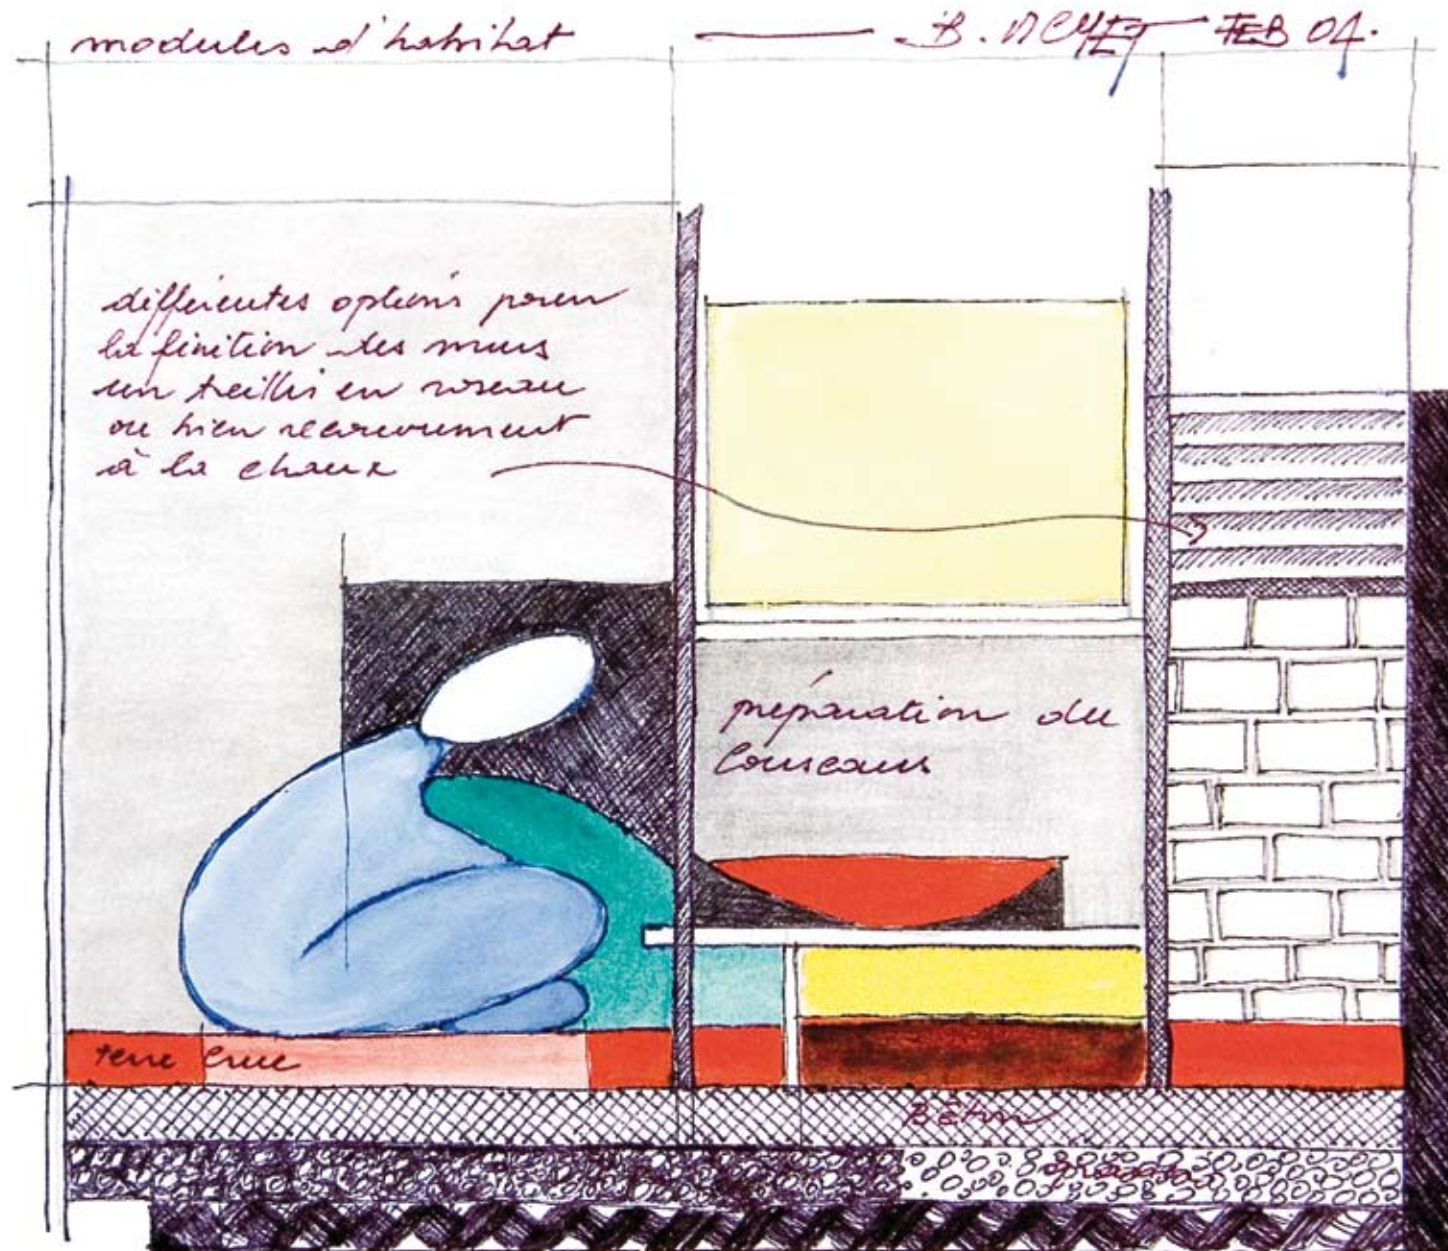 modules d'habitat
B. FEB 04.
différentes options pour
la finition des murs
un treillis en roseau
ou bien recouvrement
à la chaux
préparation du
couscous
terre crue
Béton